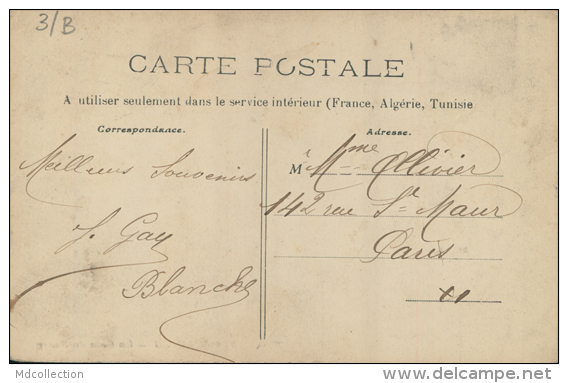 3/B
CARTE POSTALE
A utiliser seulement dans le service intérieur (France, Algérie, Tunisie
Correspondance.
Adresse.
Meilleurs Souvenirs
J. Gay
Blanche
M Mme Ollivier
142 rue St Maur
Paris
11
Mdcollection
www.delcampe.net